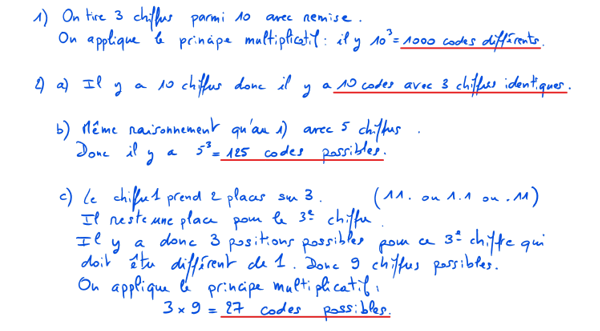 1) On tire 3 chiffres parmi 10 avec remise.
On applique le principe multiplicatif : il y 10³ = 1000 codes différents.
2) a) Il y a 10 chiffres donc il y a 10 codes avec 3 chiffres identiques.
b) Même raisonnement qu'au 1) avec 5 chiffres.
Donc il y a 5³ = 125 codes possibles.
c) Le chiffre 1 prend 2 places sur 3. (11. ou 1.1 ou .11)
Il reste une place pour le 3e chiffre.
Il y a donc 3 positions possibles pour ce 3e chiffre qui
doit être différent de 1. Donc 9 chiffres possibles.
On applique le principe multiplicatif :
3 × 9 = 27 codes possibles.